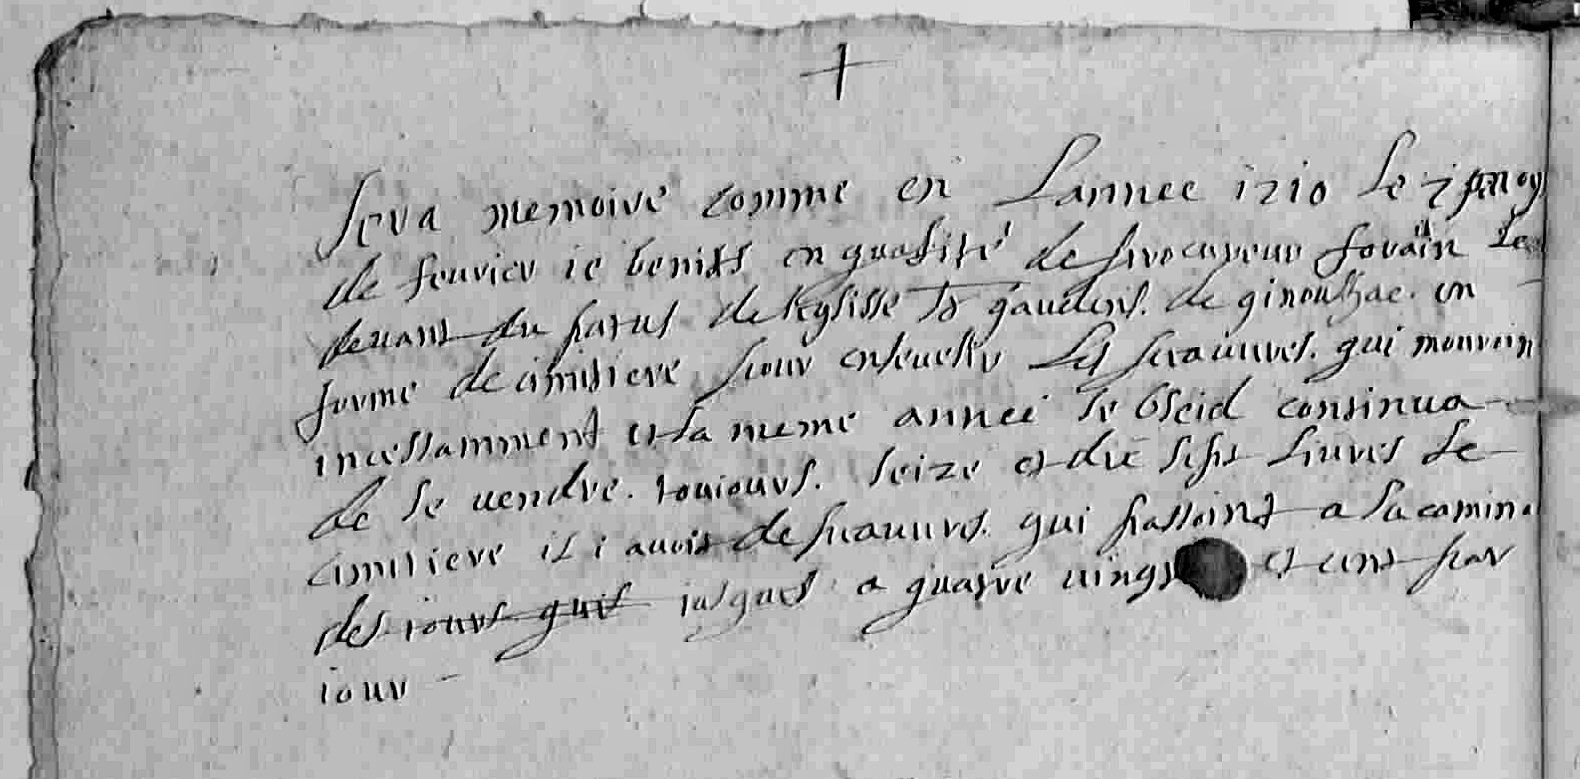 +
Sera memoire comme en Lannee 1710 le 7
de feurier ie benits en qualité de procureur forain le
deuant du patus de leglisse St gaudens de ginoulhac en
forme de cimitiere pour enseuelir les pauures qui mouroin
incessamment et la meme annee le bleid continua
de se uendre touiours seize et dix sept liures le
cimitiere il i auoit de pauures qui passoint a la
des iours jusques a quatre uingt et cent par
iour